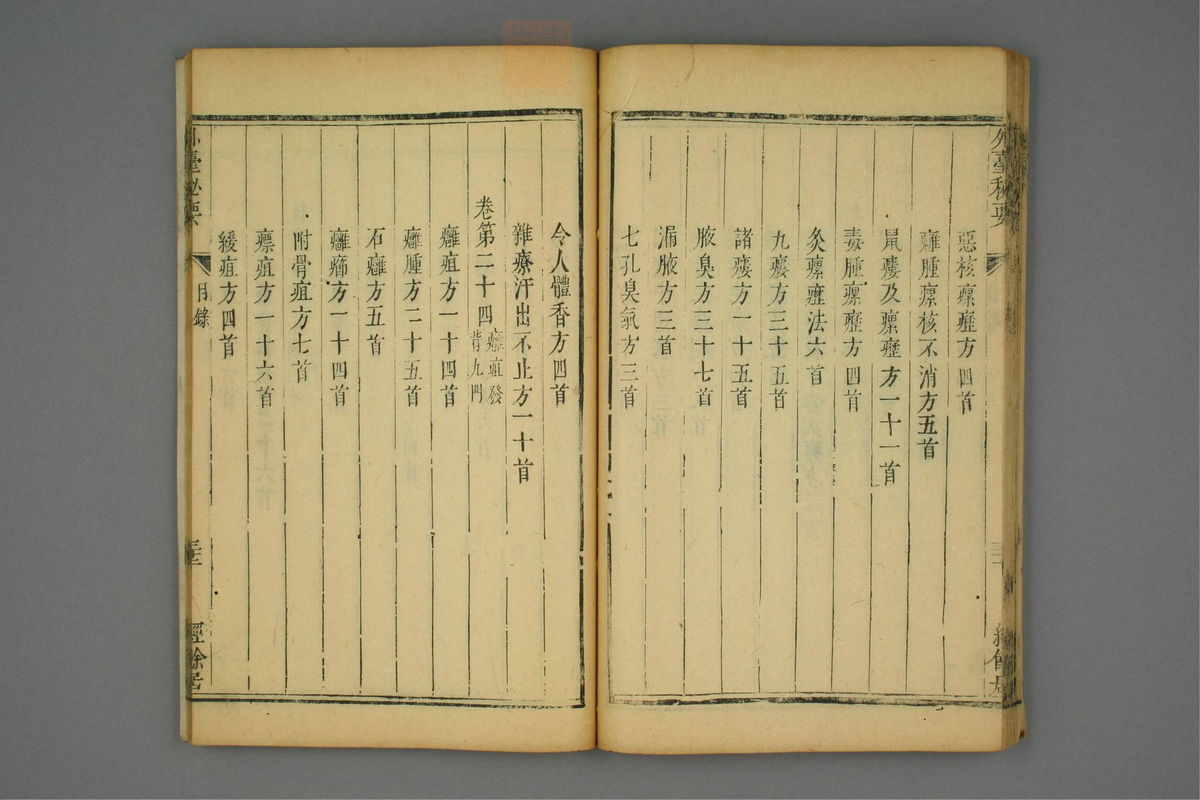 惡核瘰癧方四首
癰腫瘰核不消方五首
鼠瘻及瘰癧方一十一首
毒腫瘰癧方四首
灸瘰癧法六首
九瘻方三十五首
諸瘻方一十五首
腋臭方三十七首
漏腋方三首
七孔臭氣方三首
令人體香方四首
雜療汗出不止方一十首
卷第二十四 癰疽發背九門
癰疽方一十四首
癰腫方二十五首
石癰方五首
癰癤方一十四首
附骨疽方七首
瘭疽方一十六首
緩疽方四首
外臺秘要
目錄
經餘居